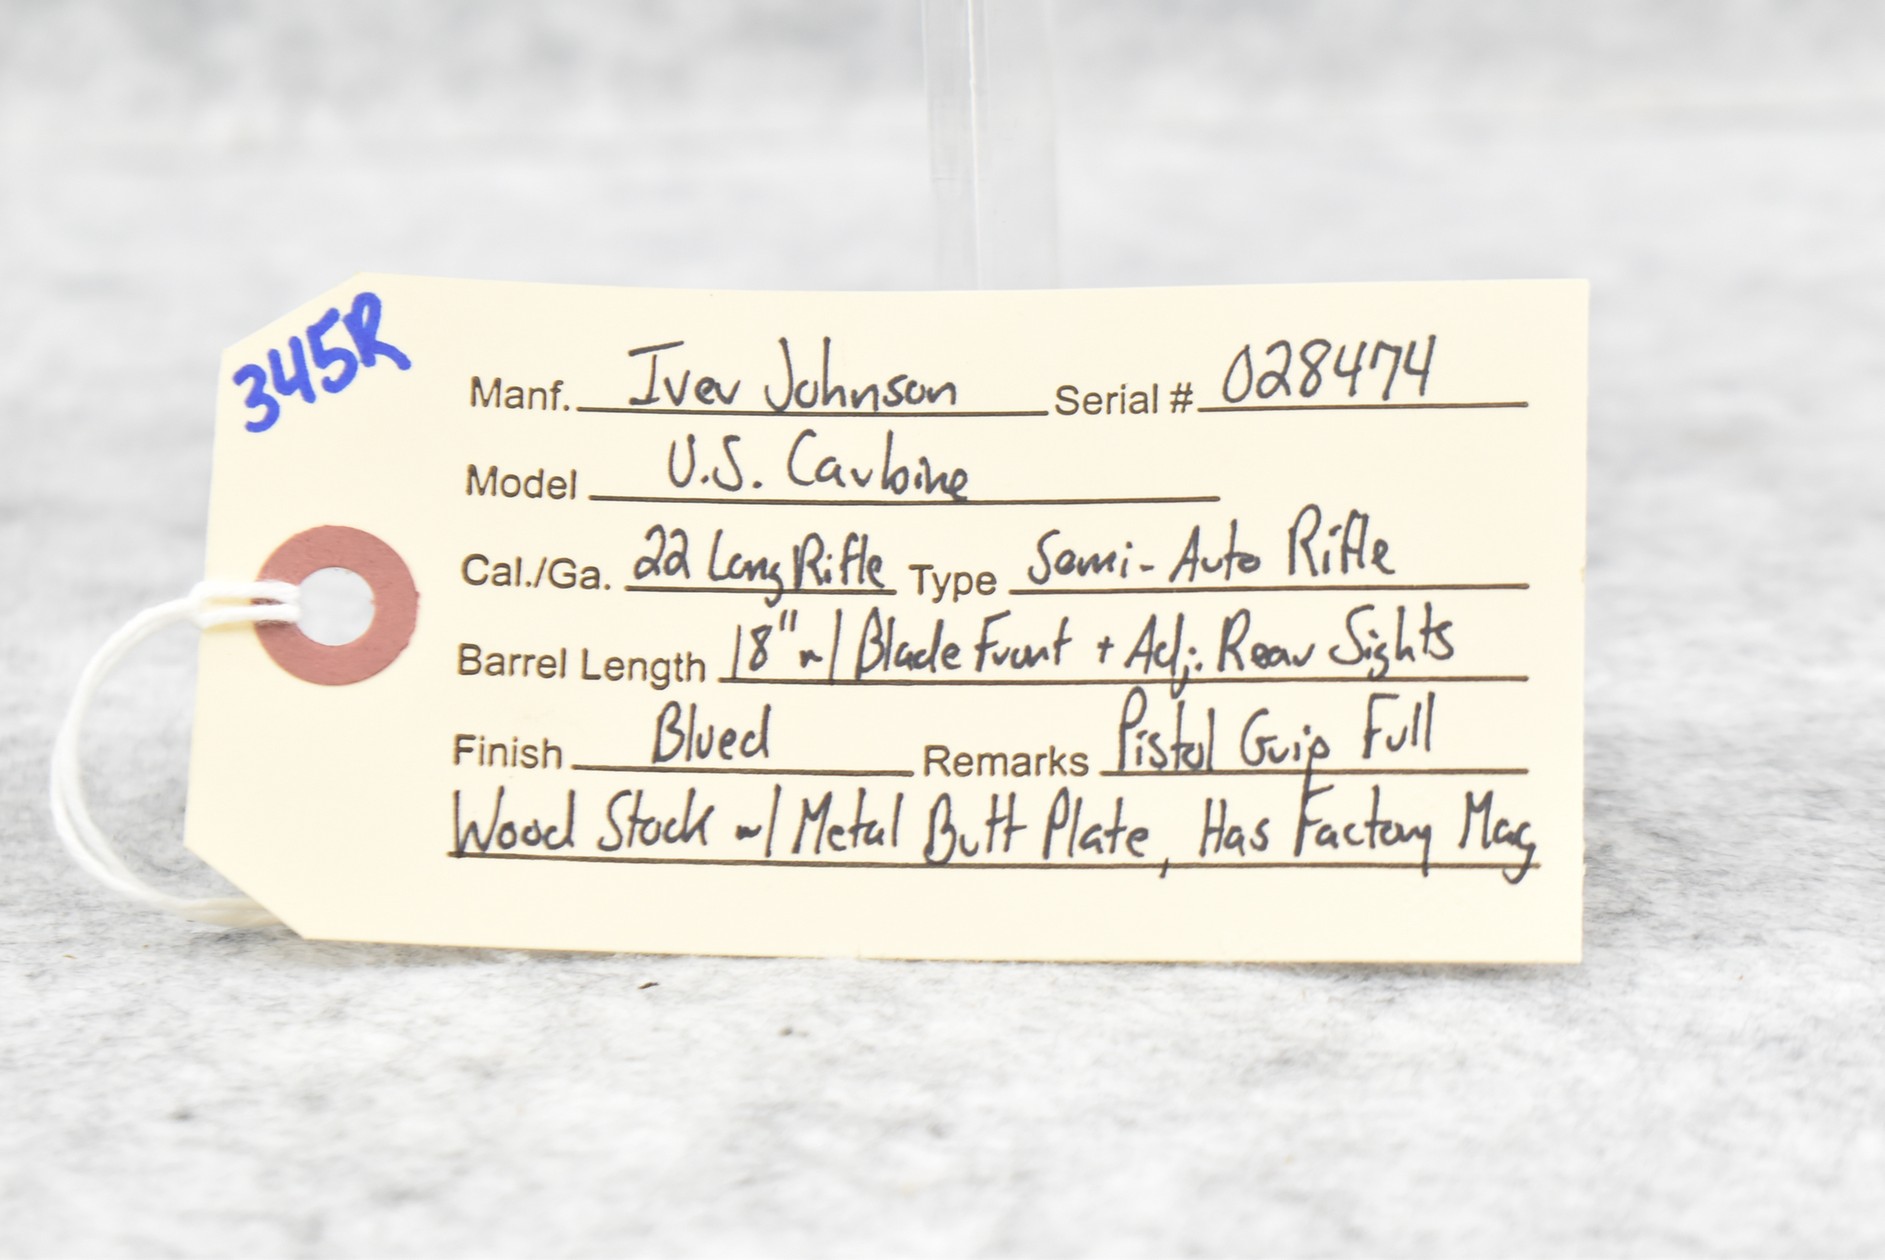 345R
Manf. Iver Johnson Serial # 028474
Model U.S. Carbine
Cal./Ga. 22 Long Rifle Type Semi-Auto Rifle
Barrel Length 18" w/ Blade Front + Adj. Rear Sights
Finish Blued Remarks Pistol Grip Full
Wood Stock w/ Metal Butt Plate, Has Factory Mag